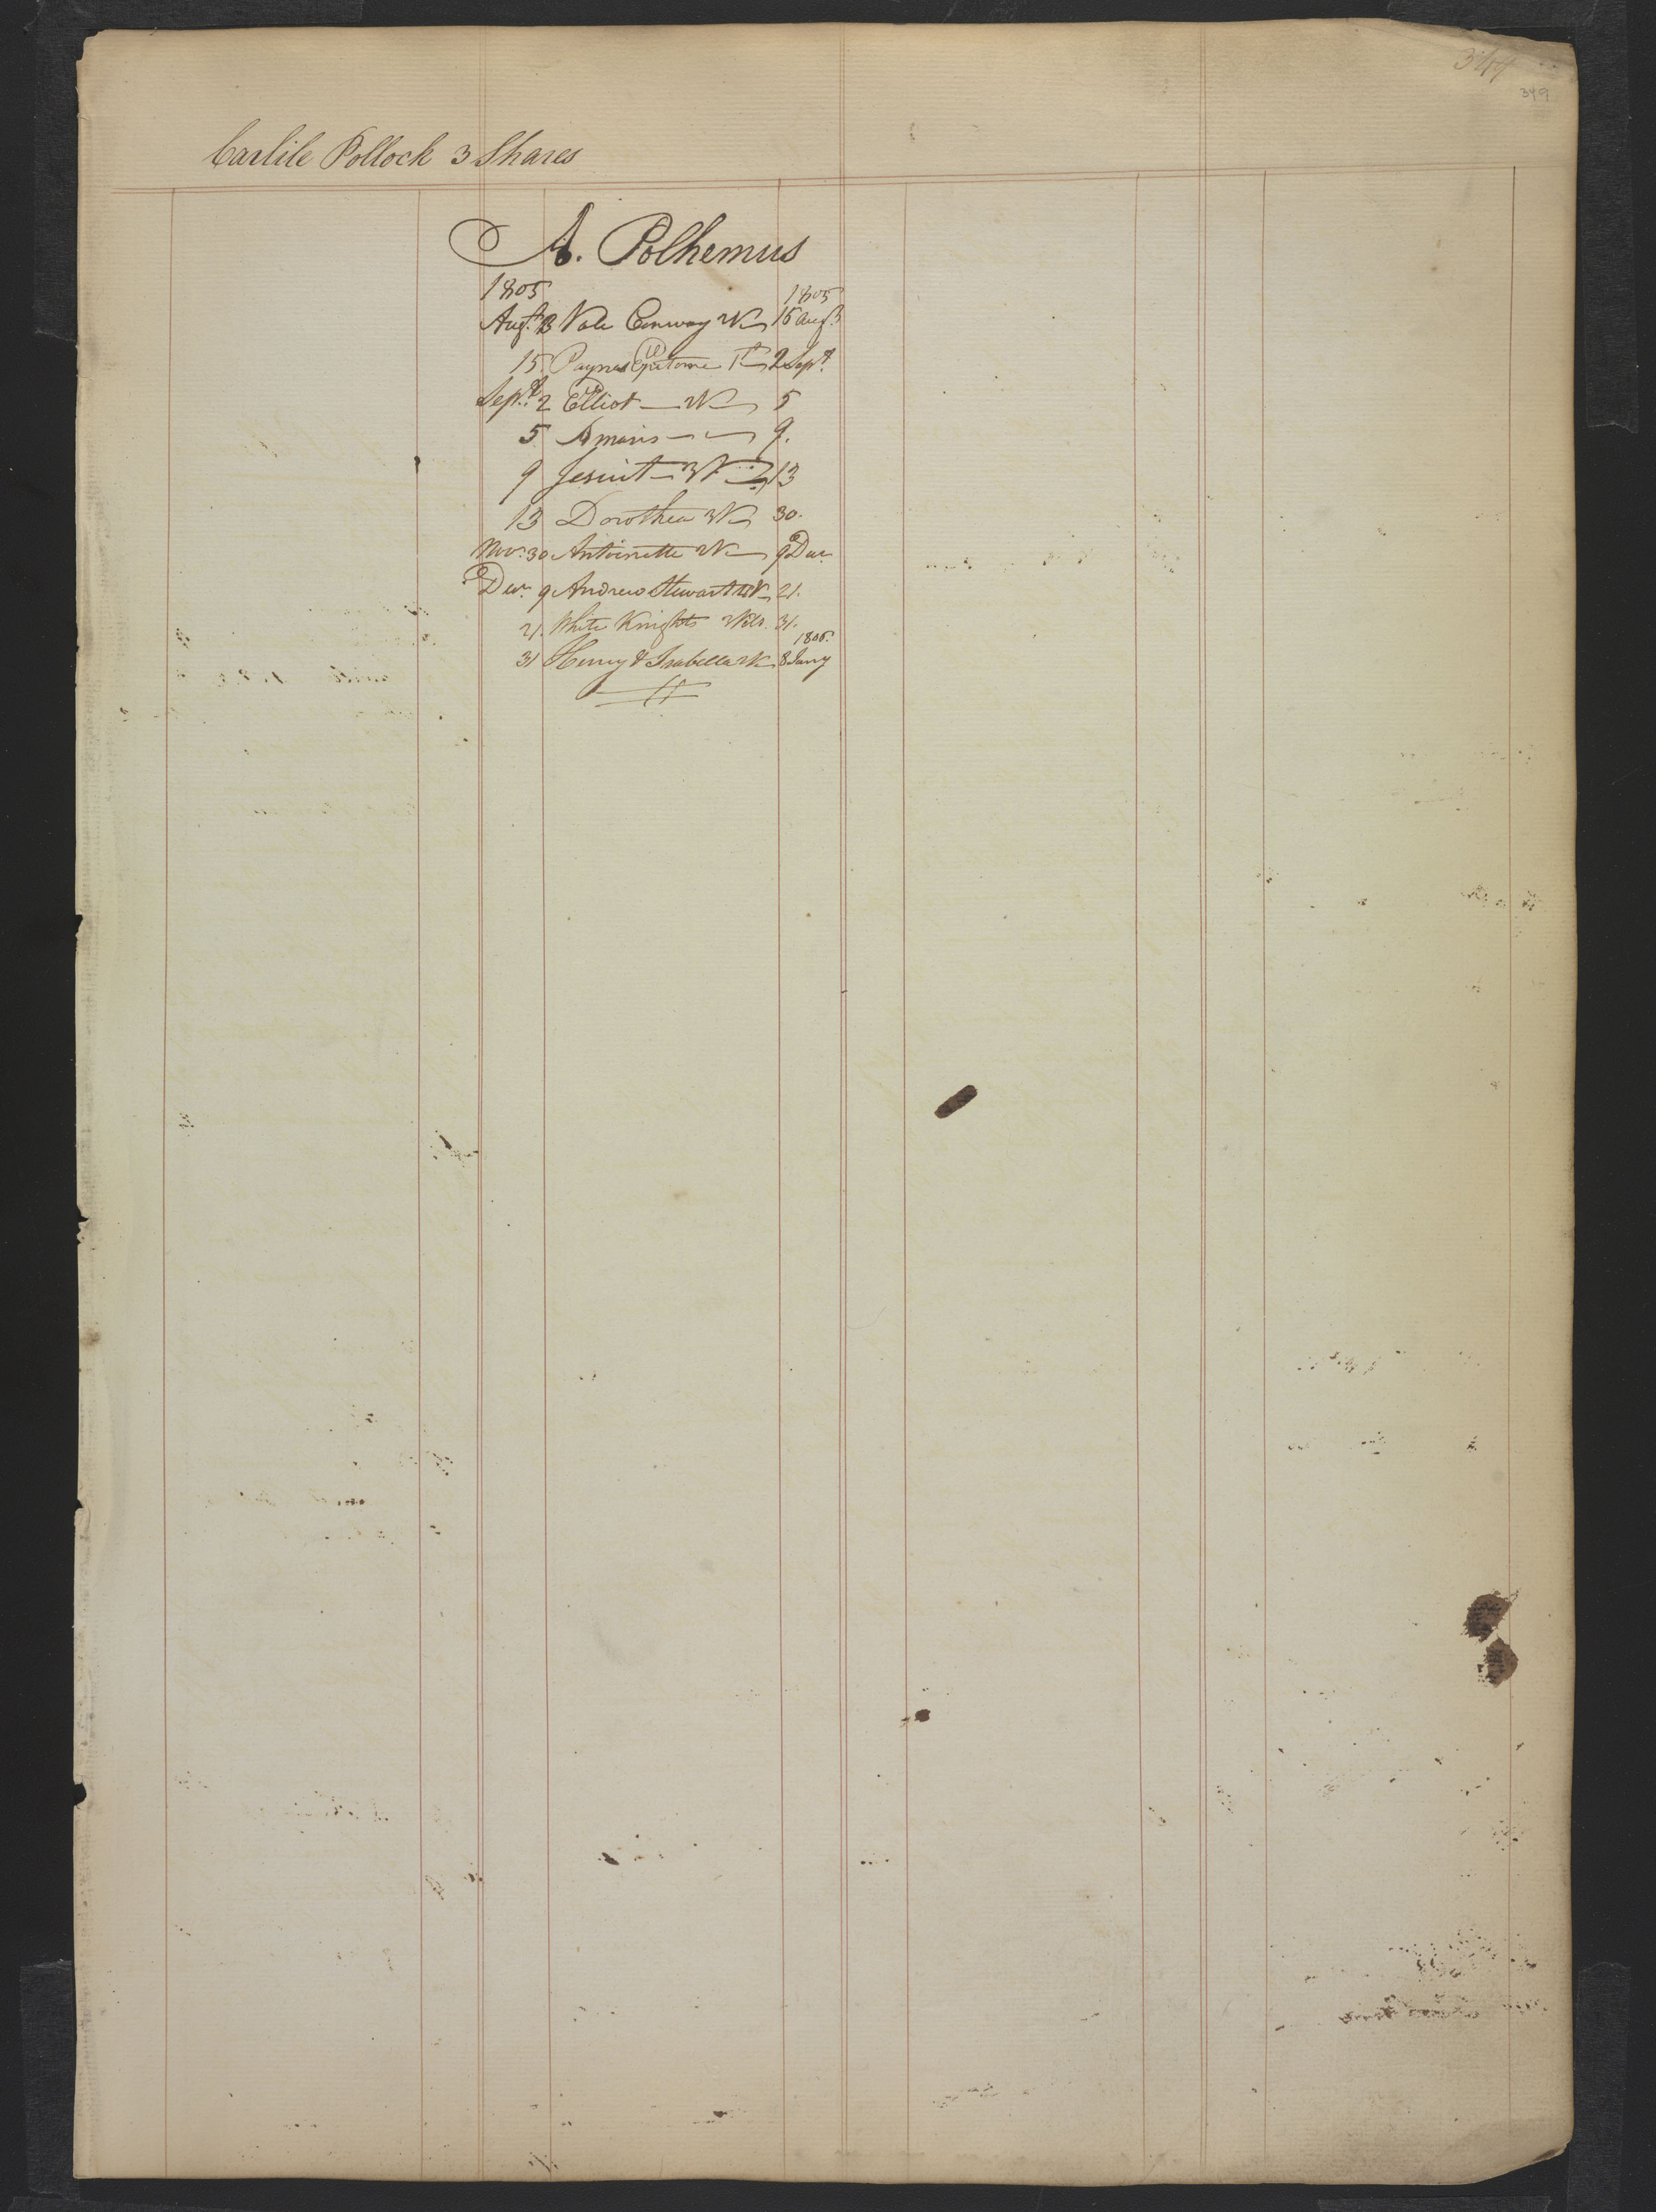 344
349
Carlile Pollock 3 Shares
A. Polhemus
1805 1805
Augt. 13 Vale Conway 2V 15 Augt.
15 Paynes Epitome 1 2 Sept.
Sept. 2 Elliot 2V 5
5 9.
9 Jesuit 3V 13
13 Dorothea 3V 30.
Nov. 30 Antoinette 2V 9 Dec.
Dec. 9 Andrew Stewart 4V 21.
21. White Knights 31.
1806.
31 Henry & Isabella 2V 8 Jany